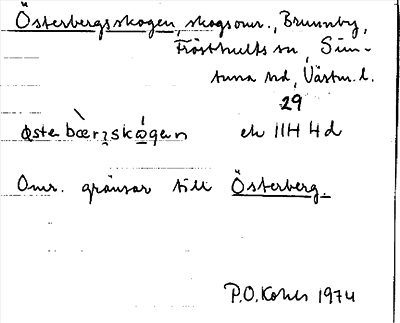 Österbergsskogen, skogsomr., Brunnby,
Frösthults sn, Sim-
tuna hd, Västm. l.
29
østerbæ̀rʒskǿgen ek 11H 4d
Omr. gränsar till Österberg.
P.O. Kohls 1974